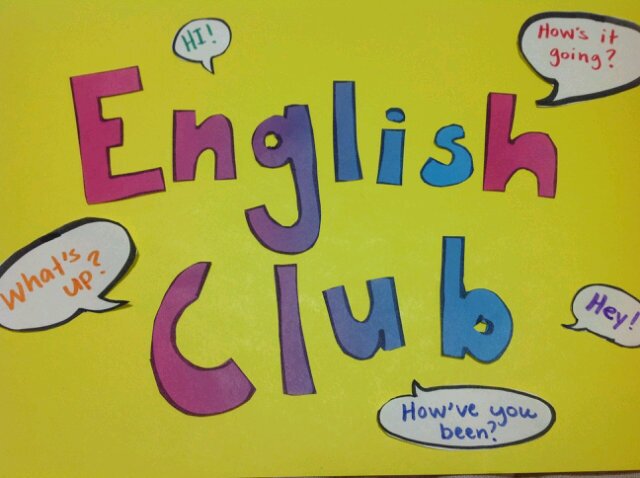 HI!
How's it
going?
English
Club
What's
up?
Hey!
How've you
been?